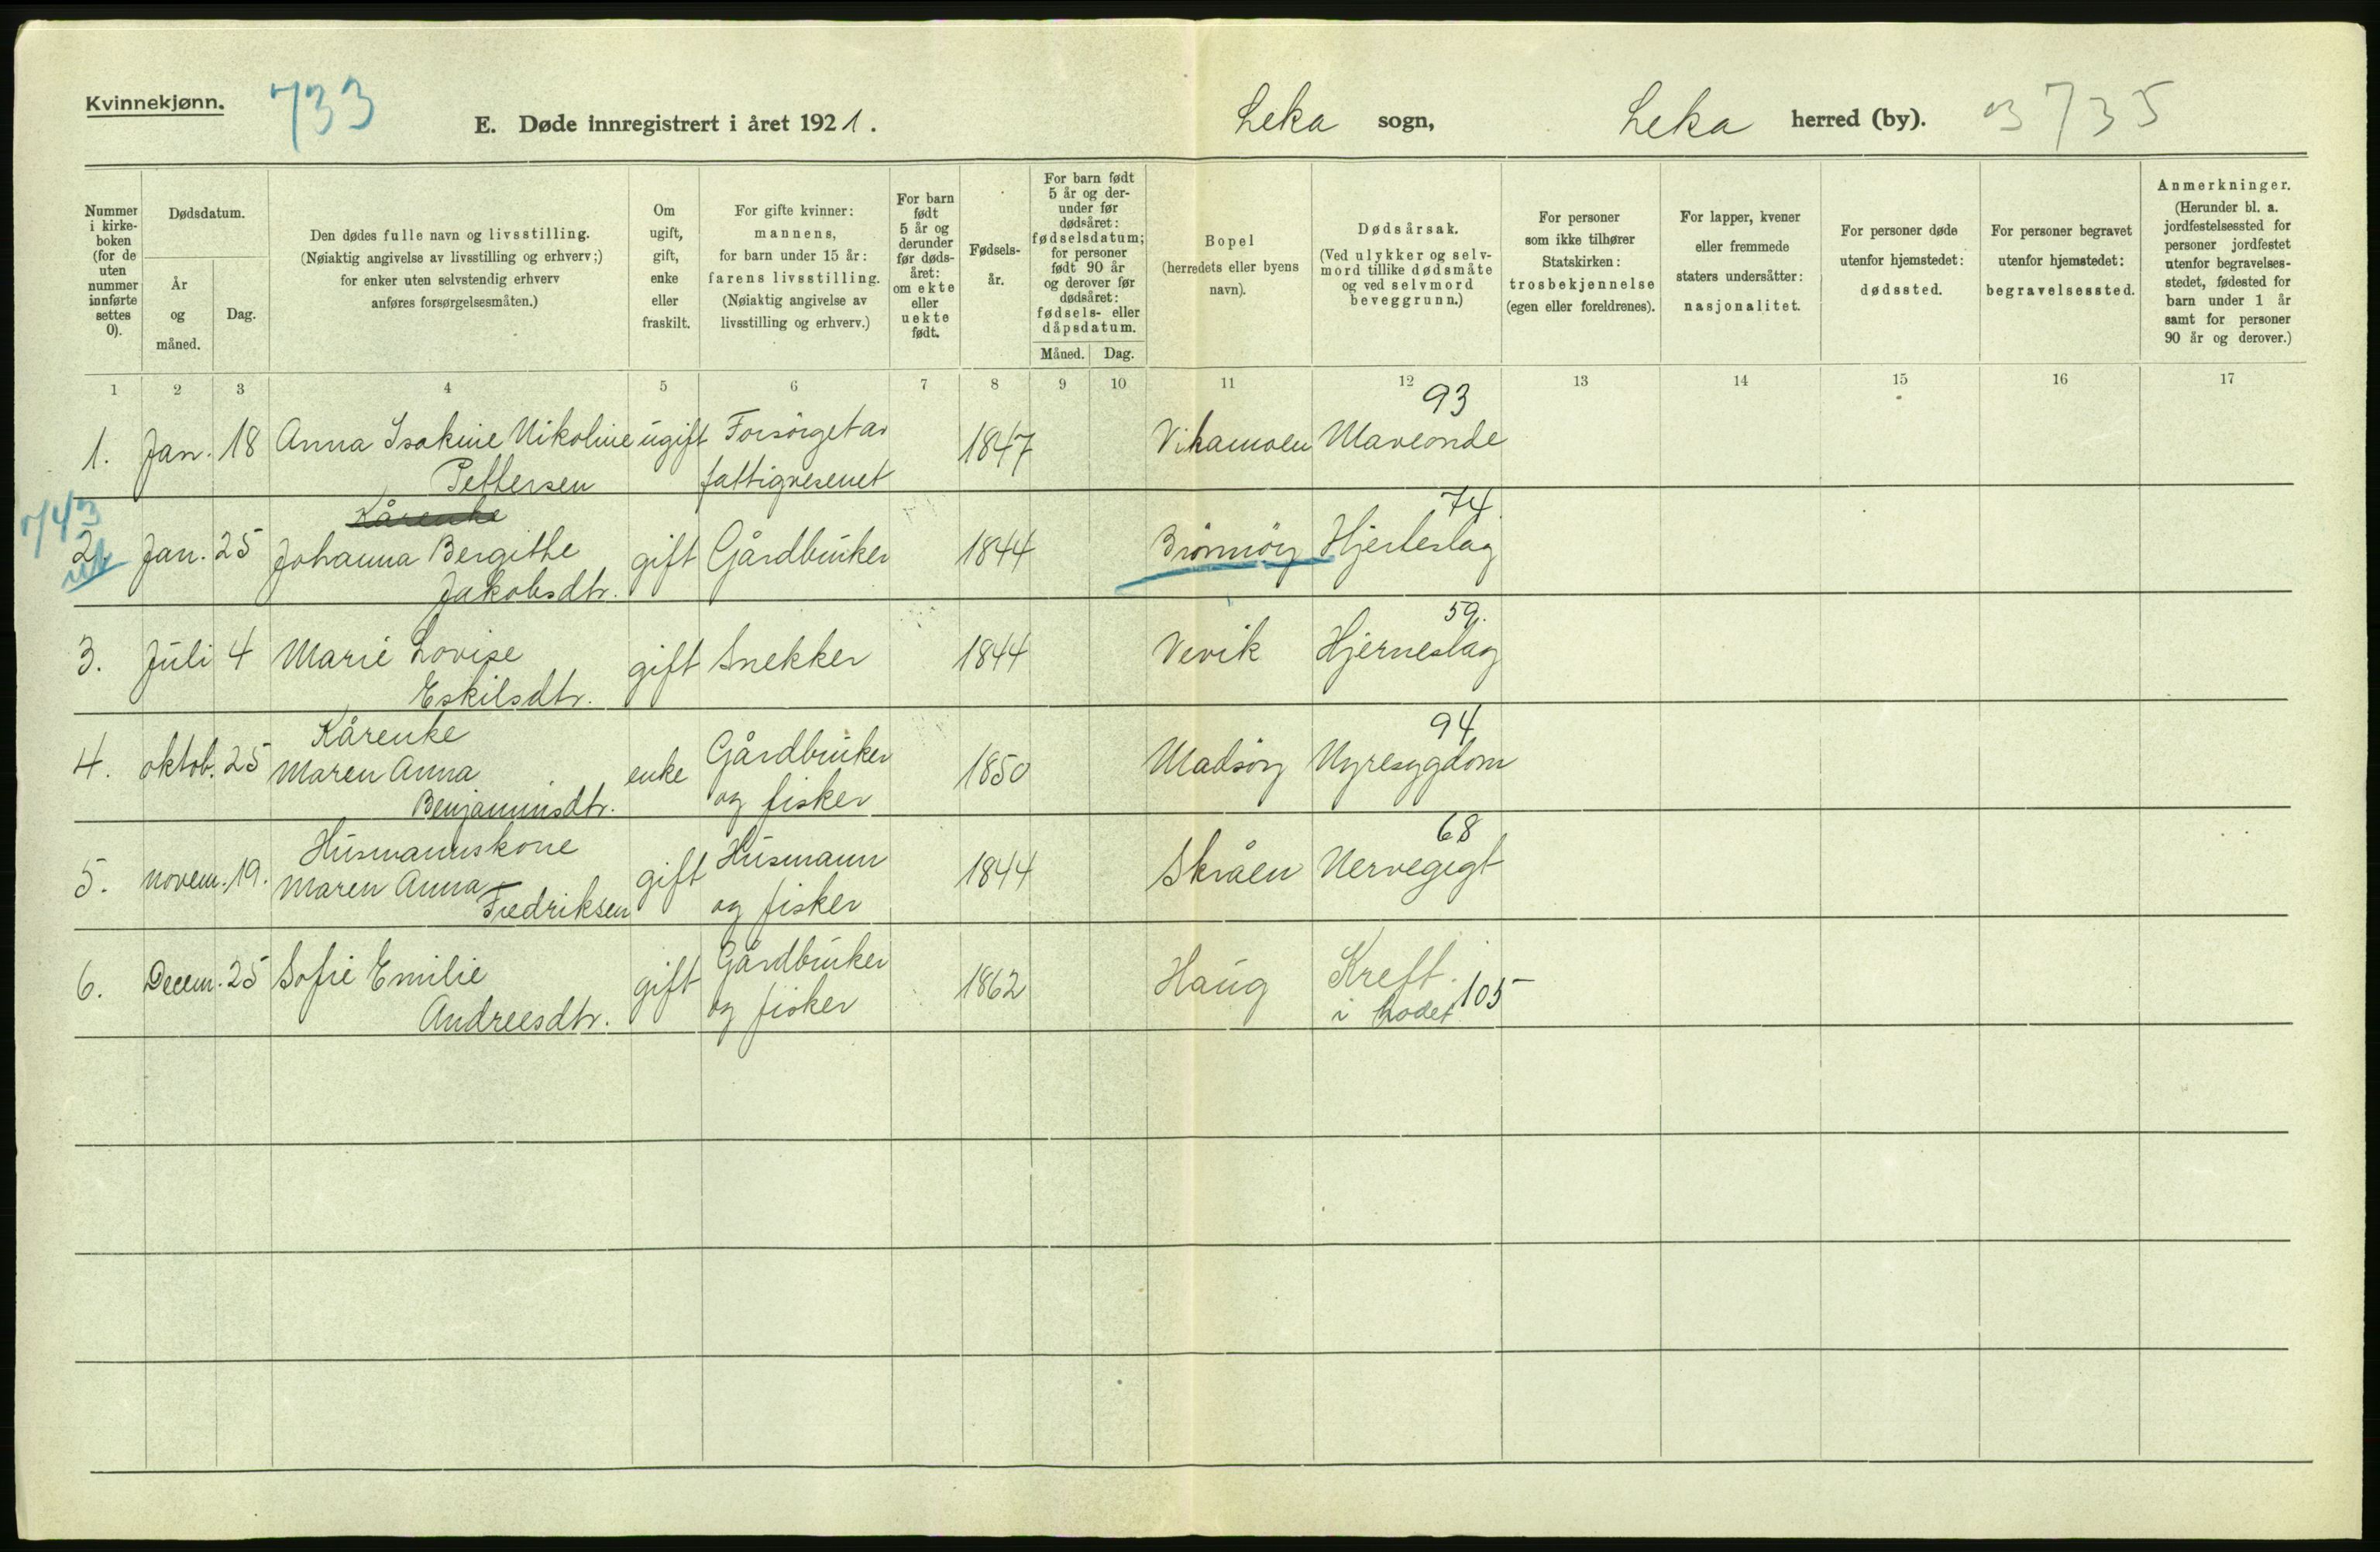 Kvinnekjønn.
733
E. Døde innregistrert i året 1921.
Leka sogn,
Leka herred (by).
3735
Nummer i kirke-boken (for de uten nummer innførte settes 0).
Dødsdatum.
År og måned.
Dag.
Den dødes fulle navn og livsstilling.
(Nøiaktig angivelse av livsstilling og erhverv;)
for enker uten selvstendig erhverv
anføres forsørgelsesmåten.)
Om ugift, gift, enke eller fraskilt.
For gifte kvinner:
mannens,
for barn under 15 år:
farens livsstilling.
(Nøiaktig angivelse av
livsstilling og erhverv.)
For barn født 5 år og derunder før døds-året: om ekte eller uekte født.
Fødsels-år.
For barn født 5 år og der-under før dødsåret: fødselsdatum; for personer født 90 år og derover før dødsåret: fødsels- eller dåpsdatum.
Måned.
Dag.
Bopel
(herredets eller byens
navn).
Dødsårsak.
(Ved ulykker og selv-
mord tillike dødsmåte
og ved selvmord
beveggrunn.)
For personer
som ikke tilhører
Statskirken:
trosbekjennelse
(egen eller foreldrenes).
For lapper, kvener
eller fremmede
staters undersåtter:
nasjonalitet.
For personer døde
utenfor hjemstedet:
dødssted.
For personer begravet
utenfor hjemstedet:
begravelsessted.
Anmerkninger.
(Herunder bl. a.
jordfestelsessted for
personer jordfestet
utenfor begravelses-
stedet, fødested for
barn under 1 år
samt for personer
90 år og derover.)
1 2 3 4 5 6 7 8 9 10 11 12 13 14 15 16 17
93
1. Jan. 18 Anna Isakine Nikoline ugift Forsörget av 1847 Vikamoen Maveonde
Pettersen fattigvesenet
743
Kårenke 74.
2. Jan. 25 Johanna Bergithe gift Gårdbruker 1844 Brönnöy Hjerteslag
Jakobsdtr.
59.
3. Juli 4 Marie Lovise gift Snekker 1844 Vevik Hjerneslag
Eskilsdtr.
Kårenke 94
4. oktob. 25 Maren Anna enke Gårdbruker 1850 Madsöy Nyresygdom
Benjaminsdtr. og fisker
Husmannskone 68
5. novem. 19. Maren Anna gift Husmann 1844 Skråen Nervegigt
Fredriksen og fisker
6. Decem. 25 Sofie Emilie gift Gårdbruker 1862 Haug Kreft
Andreesdtr. og fisker i hodet 105